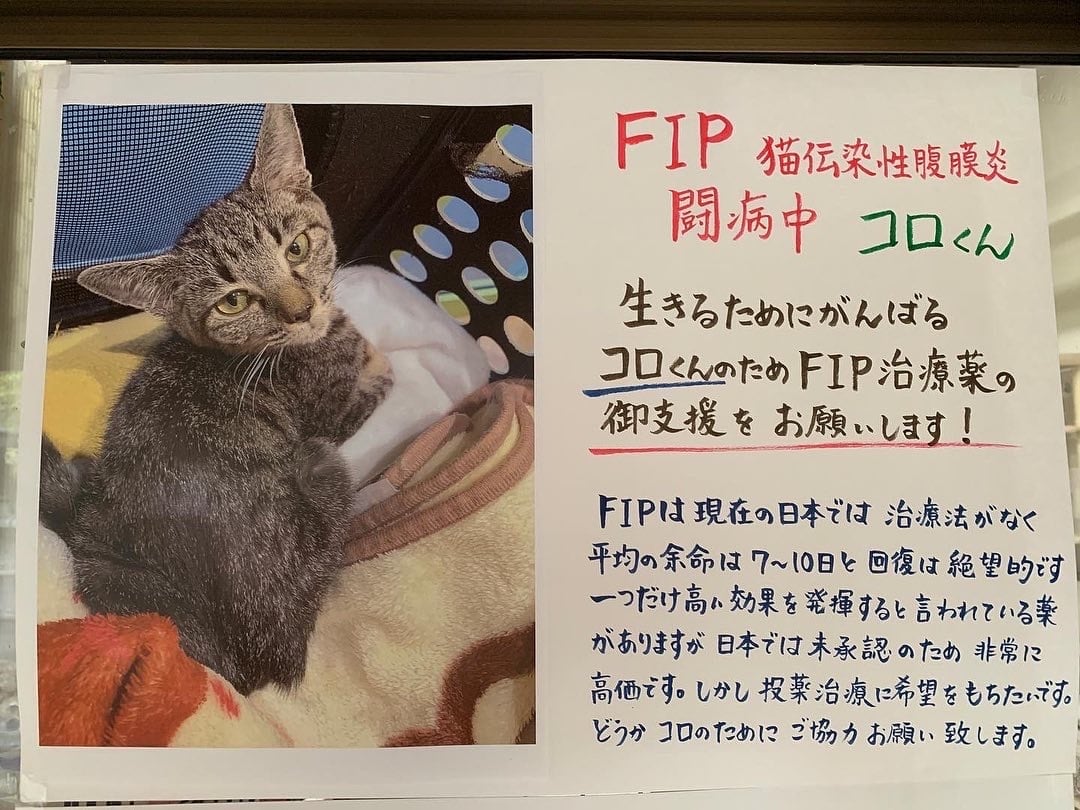 FIP 猫伝染性腹膜炎
闘病中 コロくん
生きるためにがんばる
コロくんのためFIP治療薬の
御支援をお願いします!
FIPは現在の日本では治療法がなく
平均の余命は7〜10日と回復は絶望的です
一つだけ高い効果を発揮すると言われている薬
がありますが日本では未承認のため非常に
高価です。しかし投薬治療に希望をもちたいです。
どうかコロのためにご協力お願い致します。